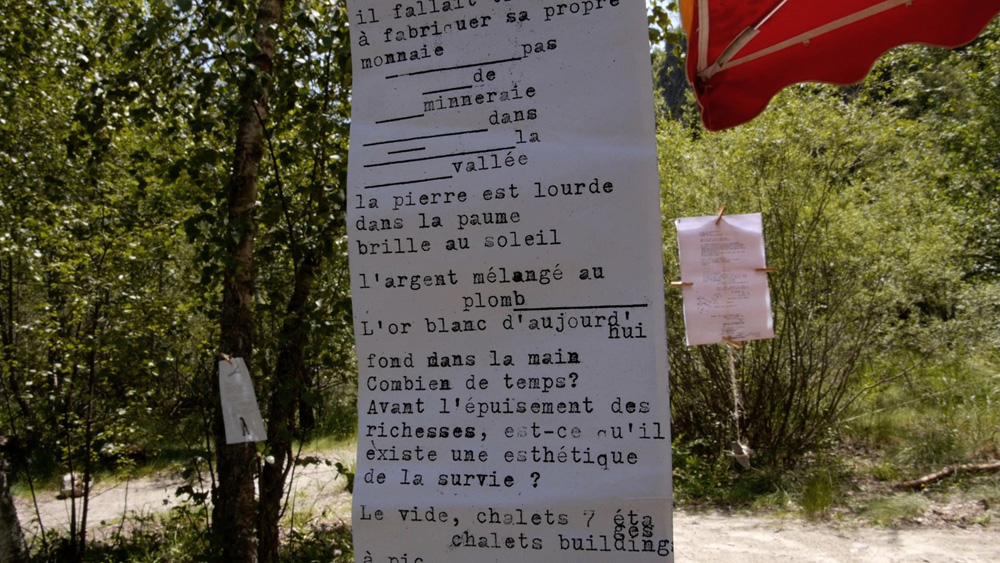 il fallait
à fabriquer sa propre
monnaie pas
de
minneraie
dans
la
vallée
la pierre est lourde
dans la paume
brille au soleil
l'argent mélangé au
plomb
L'or blanc d'aujourd'
hui
fond dans la main
Combien de temps?
Avant l'épuisement des
richesses, est-ce qu'il
èxiste une esthétique
de la survie ?
Le vide, chalets 7 éta
ges
chalets building
à pic